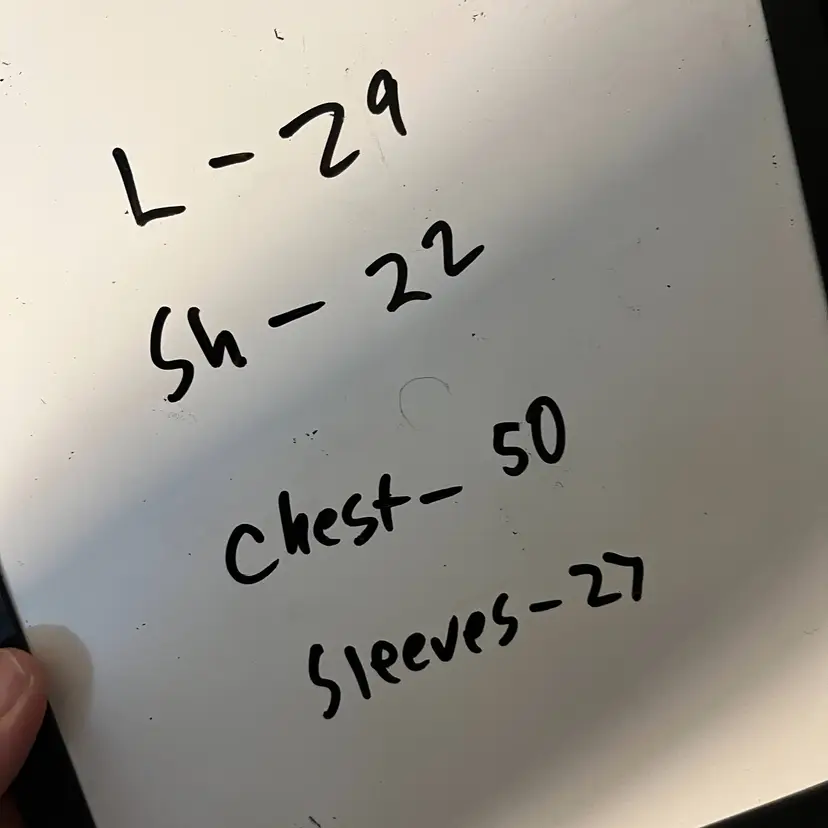 L - 29
Sh - 22
Chest - 50
Sleeves - 27